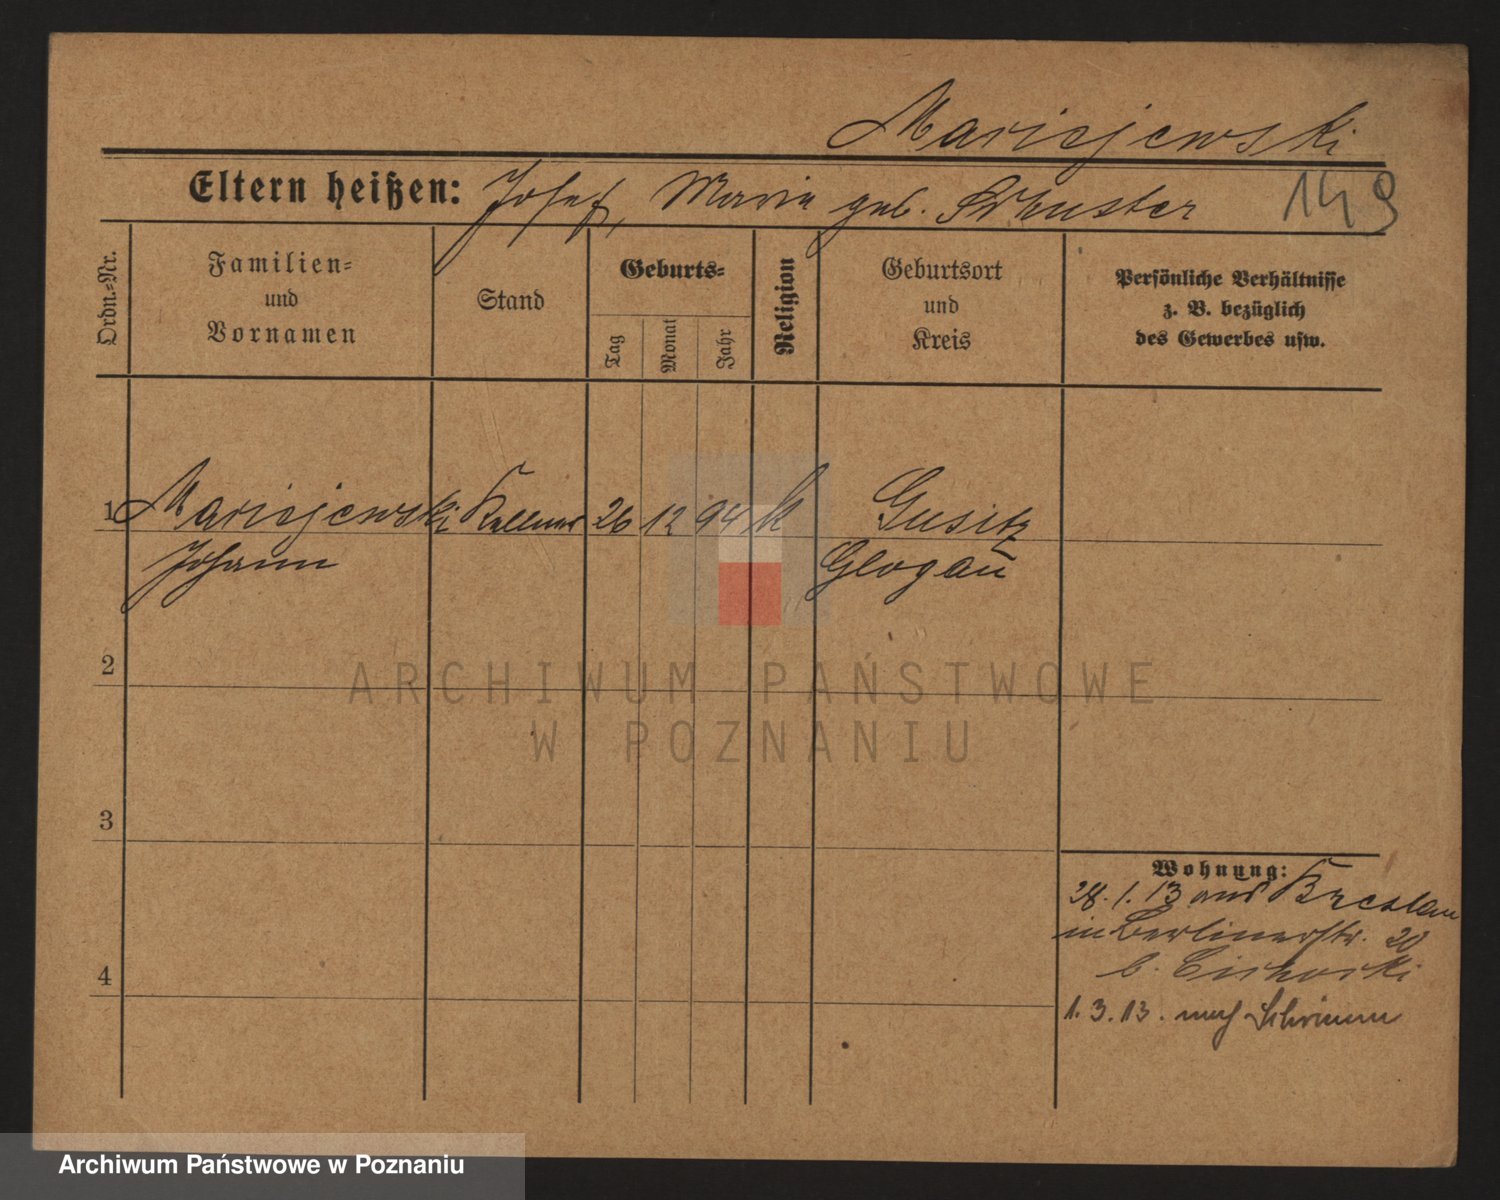 Maricjewski
Eltern heißen: Josef, Maria geb. Schuster
149
Ordn.-Nr.
Familien-
und
Vornamen
Stand
Geburts-
Tag
Monat
Jahr
Religion
Geburtsort
und
Kreis
Persönliche Verhältnisse
z. B. bezüglich
des Gewerbes usw.
1 Maricjewski Kellner 26 12 94 k Gusitz
Johann Glogau
2
ARCHIWUM PAŃSTWOWE
W POZNANIU
3
4
Wohnung:
28. 1. 13 aus Breslau
in Berlinerstr. 20
b. Cichorski
1. 3. 13. nach Schrimm
Archiwum Państwowe w Poznaniu